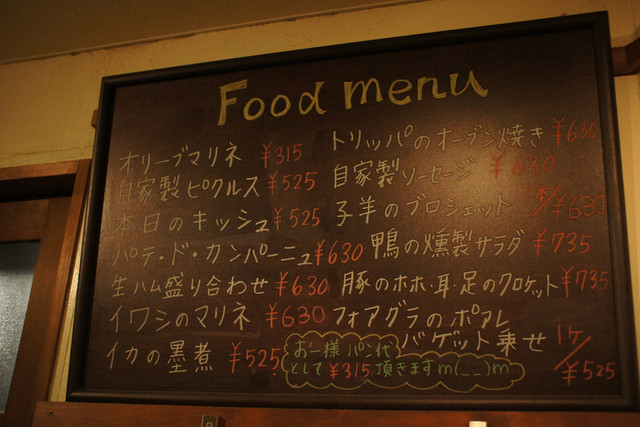 Food menu
オリーブマリネ ¥315
自家製ピクルス ¥525
本日のキッシュ ¥525
パテ・ド・カンパーニュ ¥630
生ハム盛り合わせ ¥630
イワシのマリネ ¥630
イカの墨煮 ¥525
トリッパのオーブン焼き ¥630
自家製ソーセージ ¥630
子羊のブロシェット 本/¥630
鴨の燻製サラダ ¥735
豚のホホ・耳・足のクロケット ¥735
フォアグラのポアレ
バゲット乗せ 1ケ/¥525
お一様 パン代
として ¥315 頂きます m(__)m